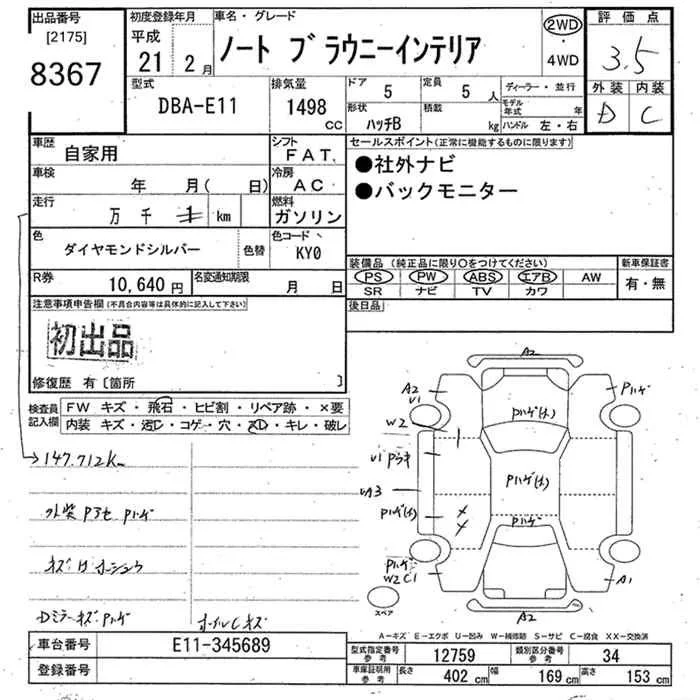 出品番号 初度登録年月 車名・グレード 評価点
[2175] 平成
8367 21年 2月 ノート ブラウニーインテリア 2WD・4WD 3.5
型式 排気量 ドア 5 定員 5人 ディーラー・並行 外装 内装
DBA-E11 1498cc 形状 ハッチB 積載 kg モデル年式 年 D C
ハンドル 左・右
車歴 自家用 シフト FAT セールスポイント(正常に機能するものに限ります)
車検 年 月(日) 冷房 AC ●社外ナビ
走行 万 千 km 燃料 ガソリン ●バックモニター
色 ダイヤモンドシルバー 色替 色コード KY0
装備品 (純正品に限り○をつけてください) 新車保証書
R券 10,640円 名変通知期限 月 日 PS PW ABS エアB AW 有・無
SR ナビ TV カワ
注意事項申告欄(不具合内容等は具体的に記入して下さい) 後日品
初出品
修復歴 有〔箇所 〕
検査員記入欄 FW キズ・飛石・ヒビ割・リペア跡・×要
内装 キズ・汚れ・コゲ・穴・スレ・キレ・破レ
147.712k
Pハゲ
Dミラーキズ Pハゲ
A2
A2 U1
Pハゲ
W2
Pハゲ(大)
U1
Pハゲ(大)
UA3
Pハゲ(大)
Pハゲ
Pハゲ
W2 C1
A1
スペア
A2
A-キズ E-エクボ U-凹み W-補修跡 S-サビ C-腐食 XX-交換済
車台番号 E11-345689 型式指定番号 参考 12759 類別区分番号 参考 34
登録番号 車庫証明用 参考 長さ 402cm 幅 169cm 高さ 153cm